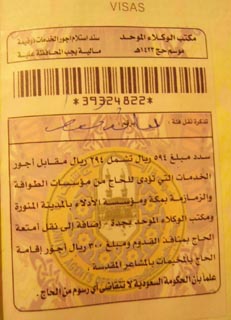 VISAS
مكتب الوكلاء الموحد
موسم حج ١٤٢٣هـ
سند استلام أجور الخدمات وثيقة
مالية يجب المحافظة عليه
*39324822*
تذكرة نقل فئة :
سدد مبلغ ٥٩٤ ريال تشمل ٢٩٤ ريال مقابل أجور
الخدمات التي تؤدى للحاج من مؤسسات الطوافة
والزمازمة بمكة ومؤسسة الأدلاء بالمدينة المنورة
ومكتب الوكلاء الموحد بجدة . إضافة إلى نقل أمتعة
الحاج بمنافذ القدوم ومبلغ ٣٠٠ ريال أجور إقامة
الحاج بالمخيمات بالمشاعر المقدسة .
علما بأن الحكومة السعودية لا تتقاضى أي رسوم من الحاج .